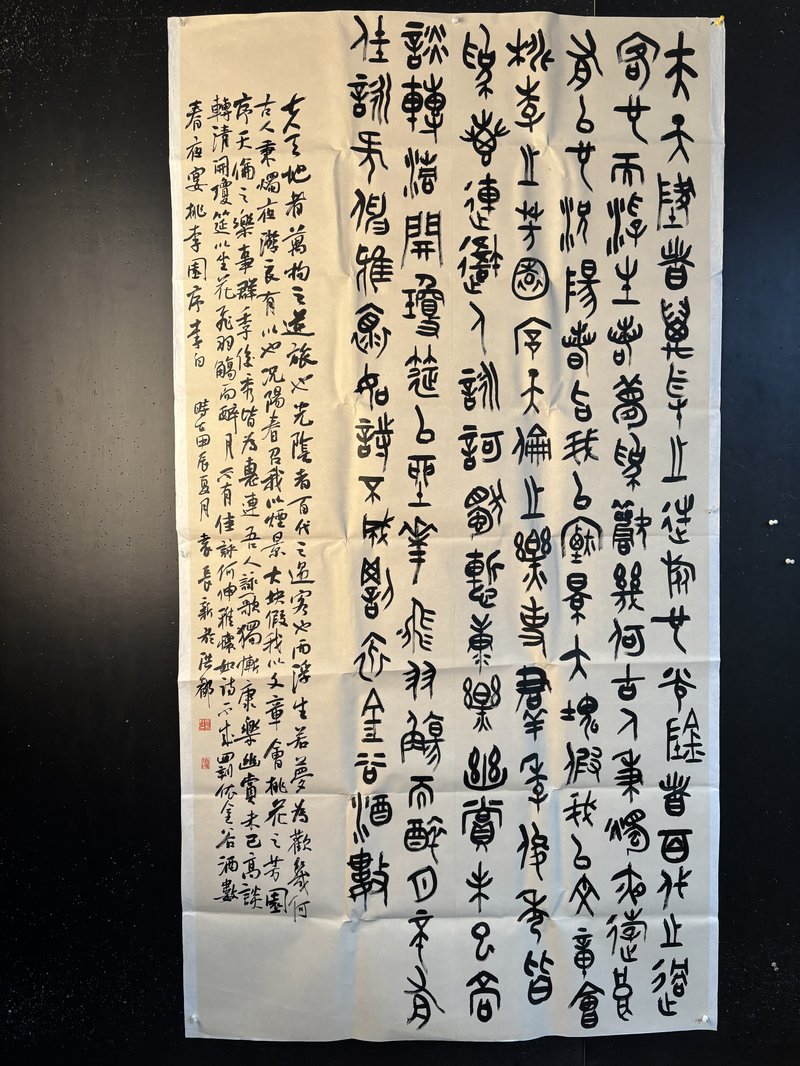 夫天地者萬物之逆旅也光陰者百代之過
客也而浮生若夢為歡幾何古人秉燭夜遊良
有以也況陽春召我以煙景大塊假我以文章會
桃李之芳園序天倫之樂事羣季俊秀皆
為惠連吾人詠歌獨慚康樂幽賞未已高
談轉清開瓊筵以坐華飛羽觴而醉月不有
佳詠何伸雅懷如詩不成罰依金谷酒數
夫天地者萬物之逆旅也光陰者百代之過客也而浮生若夢為歡幾何
古人秉燭夜游良有以也況陽春召我以煙景大塊假我以文章會桃花之芳園
序天倫之樂事群季俊秀皆為惠連吾人詠歌獨慚康樂幽賞未已高談
轉清開瓊筵以坐花飛羽觴而醉月不有佳詠何伸雅懷如詩不成罰依金谷酒數
春夜宴桃李園序李白 時在甲辰夏月袁長新於洪都